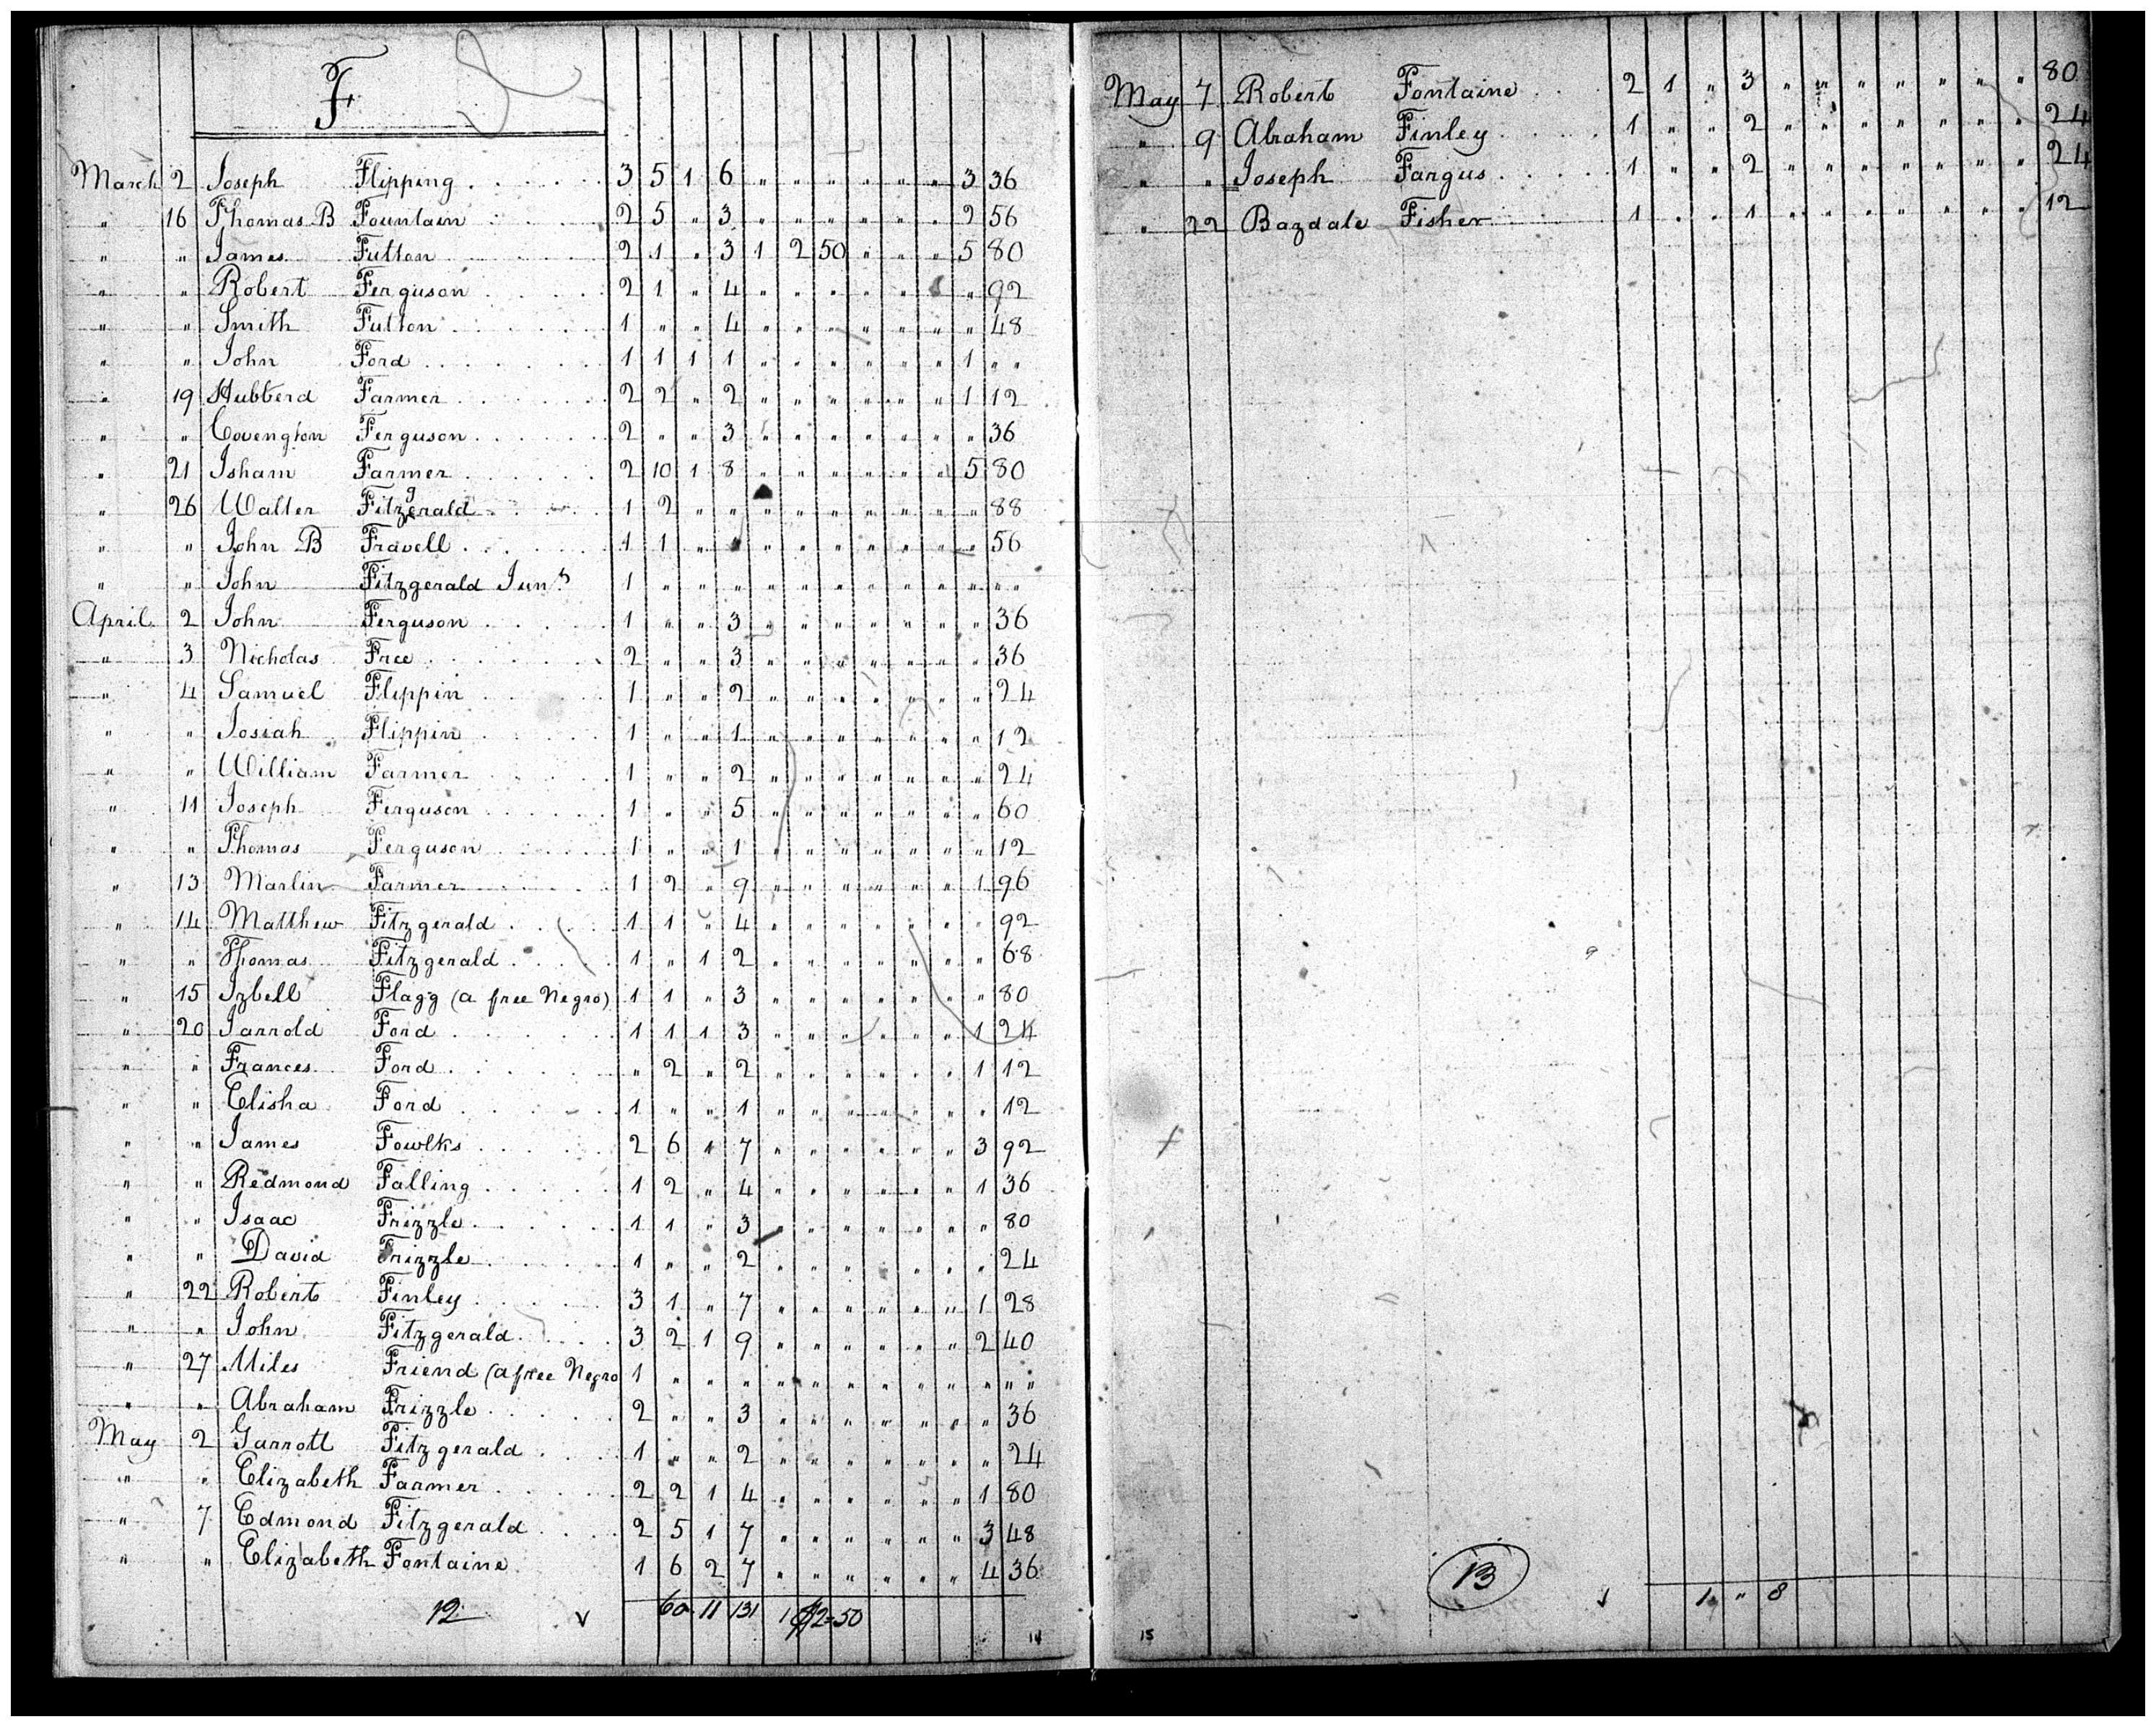 F
March 2 Joseph Flipping . . . . . 3 5 1 6 " " " " " " 3 36
" 16 Thomas B Fountain . . . 2 5 " 3 " " " " " " 2 56
" " James Fulton . . . . 2 1 " 3 1 2 50 " " " 5 80
" " Robert Ferguson . . . . 2 1 " 4 " " " " " " " 92
" " Smith Fulton . . . . . 1 " " 4 " " " " " " " 48
" " John Ford . . . . . . 1 1 1 1 " " " " " " 1 " "
" 19 Hubberd Farmer . . . . . 2 2 " 2 " " " " " " 1 12
" " Covengton Ferguson . . . . 2 " " 3 " " " " " " " 36
" 21 Isham Farmer . . . . . 2 10 1 8 " " " " " " 5 80
" 26 Walter Fitzgerald . . . 1 2 " " " " " " " " " 88
" " John B Fravell . . . . . 1 1 " " " " " " " " " 56
" " John Fitzgerald Junr 1 " " " " " " " " " " " "
April 2 John Ferguson . . . . 1 " " 3 " " " " " " " 36
" 3 Nicholas Free . . . . . 2 " " 3 " " " " " " " 36
" 4 Samuel Flippin . . . . 1 " " 2 " " " " " " " 24
" " Josiah Flippin . . . . 1 " " 1 " " " " " " " 12
" " William Farmer . . . . 1 " " 2 " " " " " " " 24
" 11 Joseph Ferguson . . . . 1 " " 5 " " " " " " " 60
" " Thomas Ferguson . . . . 1 " " 1 " " " " " " " 12
" 13 Marlin Farmer . . . . 1 2 " 9 " " " " " " 1 96
" 14 Matthew Fitzgerald . . . 1 1 " 4 " " " " " " " 92
" " Thomas Fitzgerald . . . 1 " 1 2 " " " " " " " 68
" 15 Izbell Flagg (a free Negro) 1 1 " 3 " " " " " " " 80
" 20 Jarrold Ford . . . . . 1 1 1 3 " " " " " " 1 24
" " Frances Ford . . . . . " 2 " 2 " " " " " " 1 12
" " Elisha Ford . . . . . 1 " " 1 " " " " " " " 12
" " James Fowlks . . . . 2 6 1 7 " " " " " " 3 92
" " Redmond Falling . . . . 1 2 " 4 " " " " " " 1 36
" " Isaac Frizzle . . . . 1 1 " 3 " " " " " " " 80
" " David Frizzle . . . . 1 " " 2 " " " " " " " 24
" 22 Robert Finley . . . . 3 1 " 7 " " " " " " 1 28
" " John Fitzgerald . . . 3 2 1 9 " " " " " " 2 40
" 27 Miles Friend (a free Negro 1 " " " " " " " " " " " "
" " Abraham Frizzle . . . . 2 " " 3 " " " " " " " 36
May 2 Garrott Fitzgerald . . . 1 " " 2 " " " " " " " 24
" " Elizabeth Farmer . . . . 2 2 1 4 " " " " " " 1 80
" 7 Edmond Fitzgerald . . . 2 5 1 7 " " " " " " 3 48
" " Elizabeth Fontaine 1 6 2 7 " " " " " " 4 36
12 v 60 11 131 1 $2=50
14
May 7 Robert Fontaine . . . 2 1 " 3 " " " " " " " 80
" 9 Abraham Finley . . . . 1 " " 2 " " " " " " " 24
" " Joseph Fargus . . . . 1 " " 2 " " " " " " " 24
" 22 Bazdale Fisher 1 " " 1 " " " " " " " 12
13
1 " 8
15